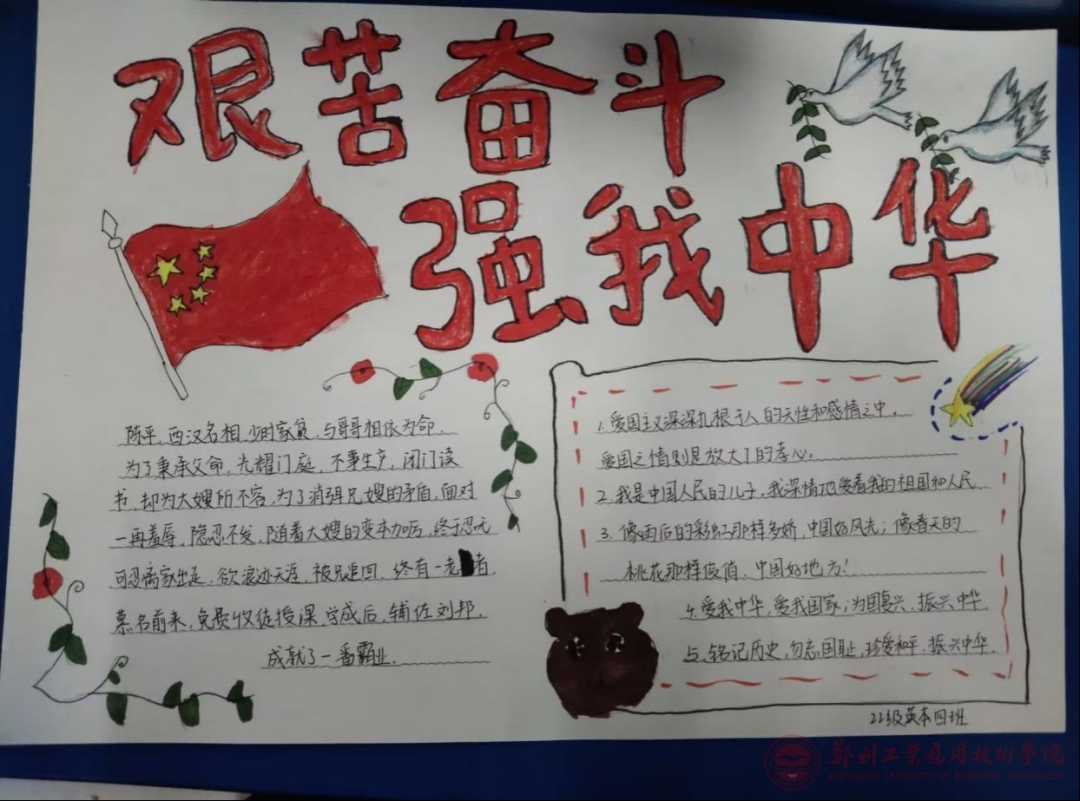 艰苦奋斗
强我中华
陈平，西汉名相，少时家贫，与哥哥相依为命，
为了秉承父命，光耀门庭，不事生产，闭门读
书，却为大嫂所不容，为了消弭兄嫂的矛盾，面对
一再羞辱，隐忍不发，随着大嫂的变本加厉，终于忍无
可忍离家出走，欲浪迹天涯，被兄追回，终有一老者
慕名前来，免费收徒授课，学成后，辅佐刘邦，
成就了一番霸业.
1.爱国主义深深扎根于人的天性和感情之中，
爱国之情则是放大了的孝心。
2.我是中国人民的儿子，我深情地爱着我的祖国和人民
3.像雨后的彩虹那样多娇，中国好风光；像春天的
桃花那样俊俏，中国好地方！
4.爱我中华，爱我国家；为国复兴，振兴中华
5、铭记历史，勿忘国耻，珍爱和平，振兴中华.
22级英本四班
郑州工业应用技术学院
ZHENGZHOU UNIVERSITY OF INDUSTRIAL TECHNOLOGY